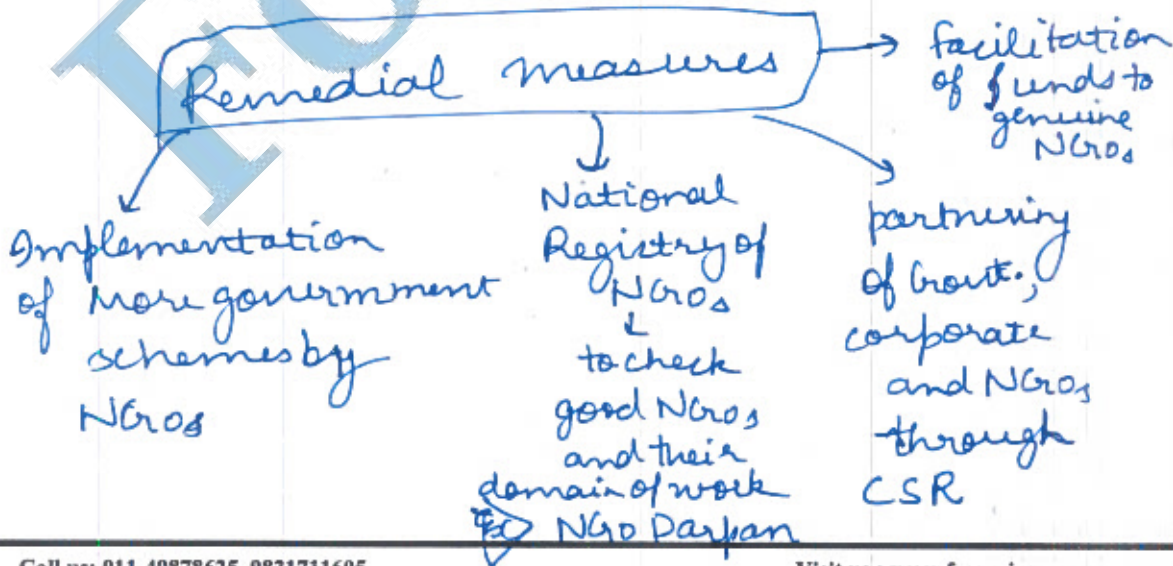 Remedial measures
facilitation
of funds to
genuine
NGOs
Implementation
of more government
schemes by
NGOs
National
Registry of
NGOs
to check
good NGOs
and their
domain of work
Ex NGO Darpan
partnering
of Govt.,
corporate
and NGOs
through
CSR